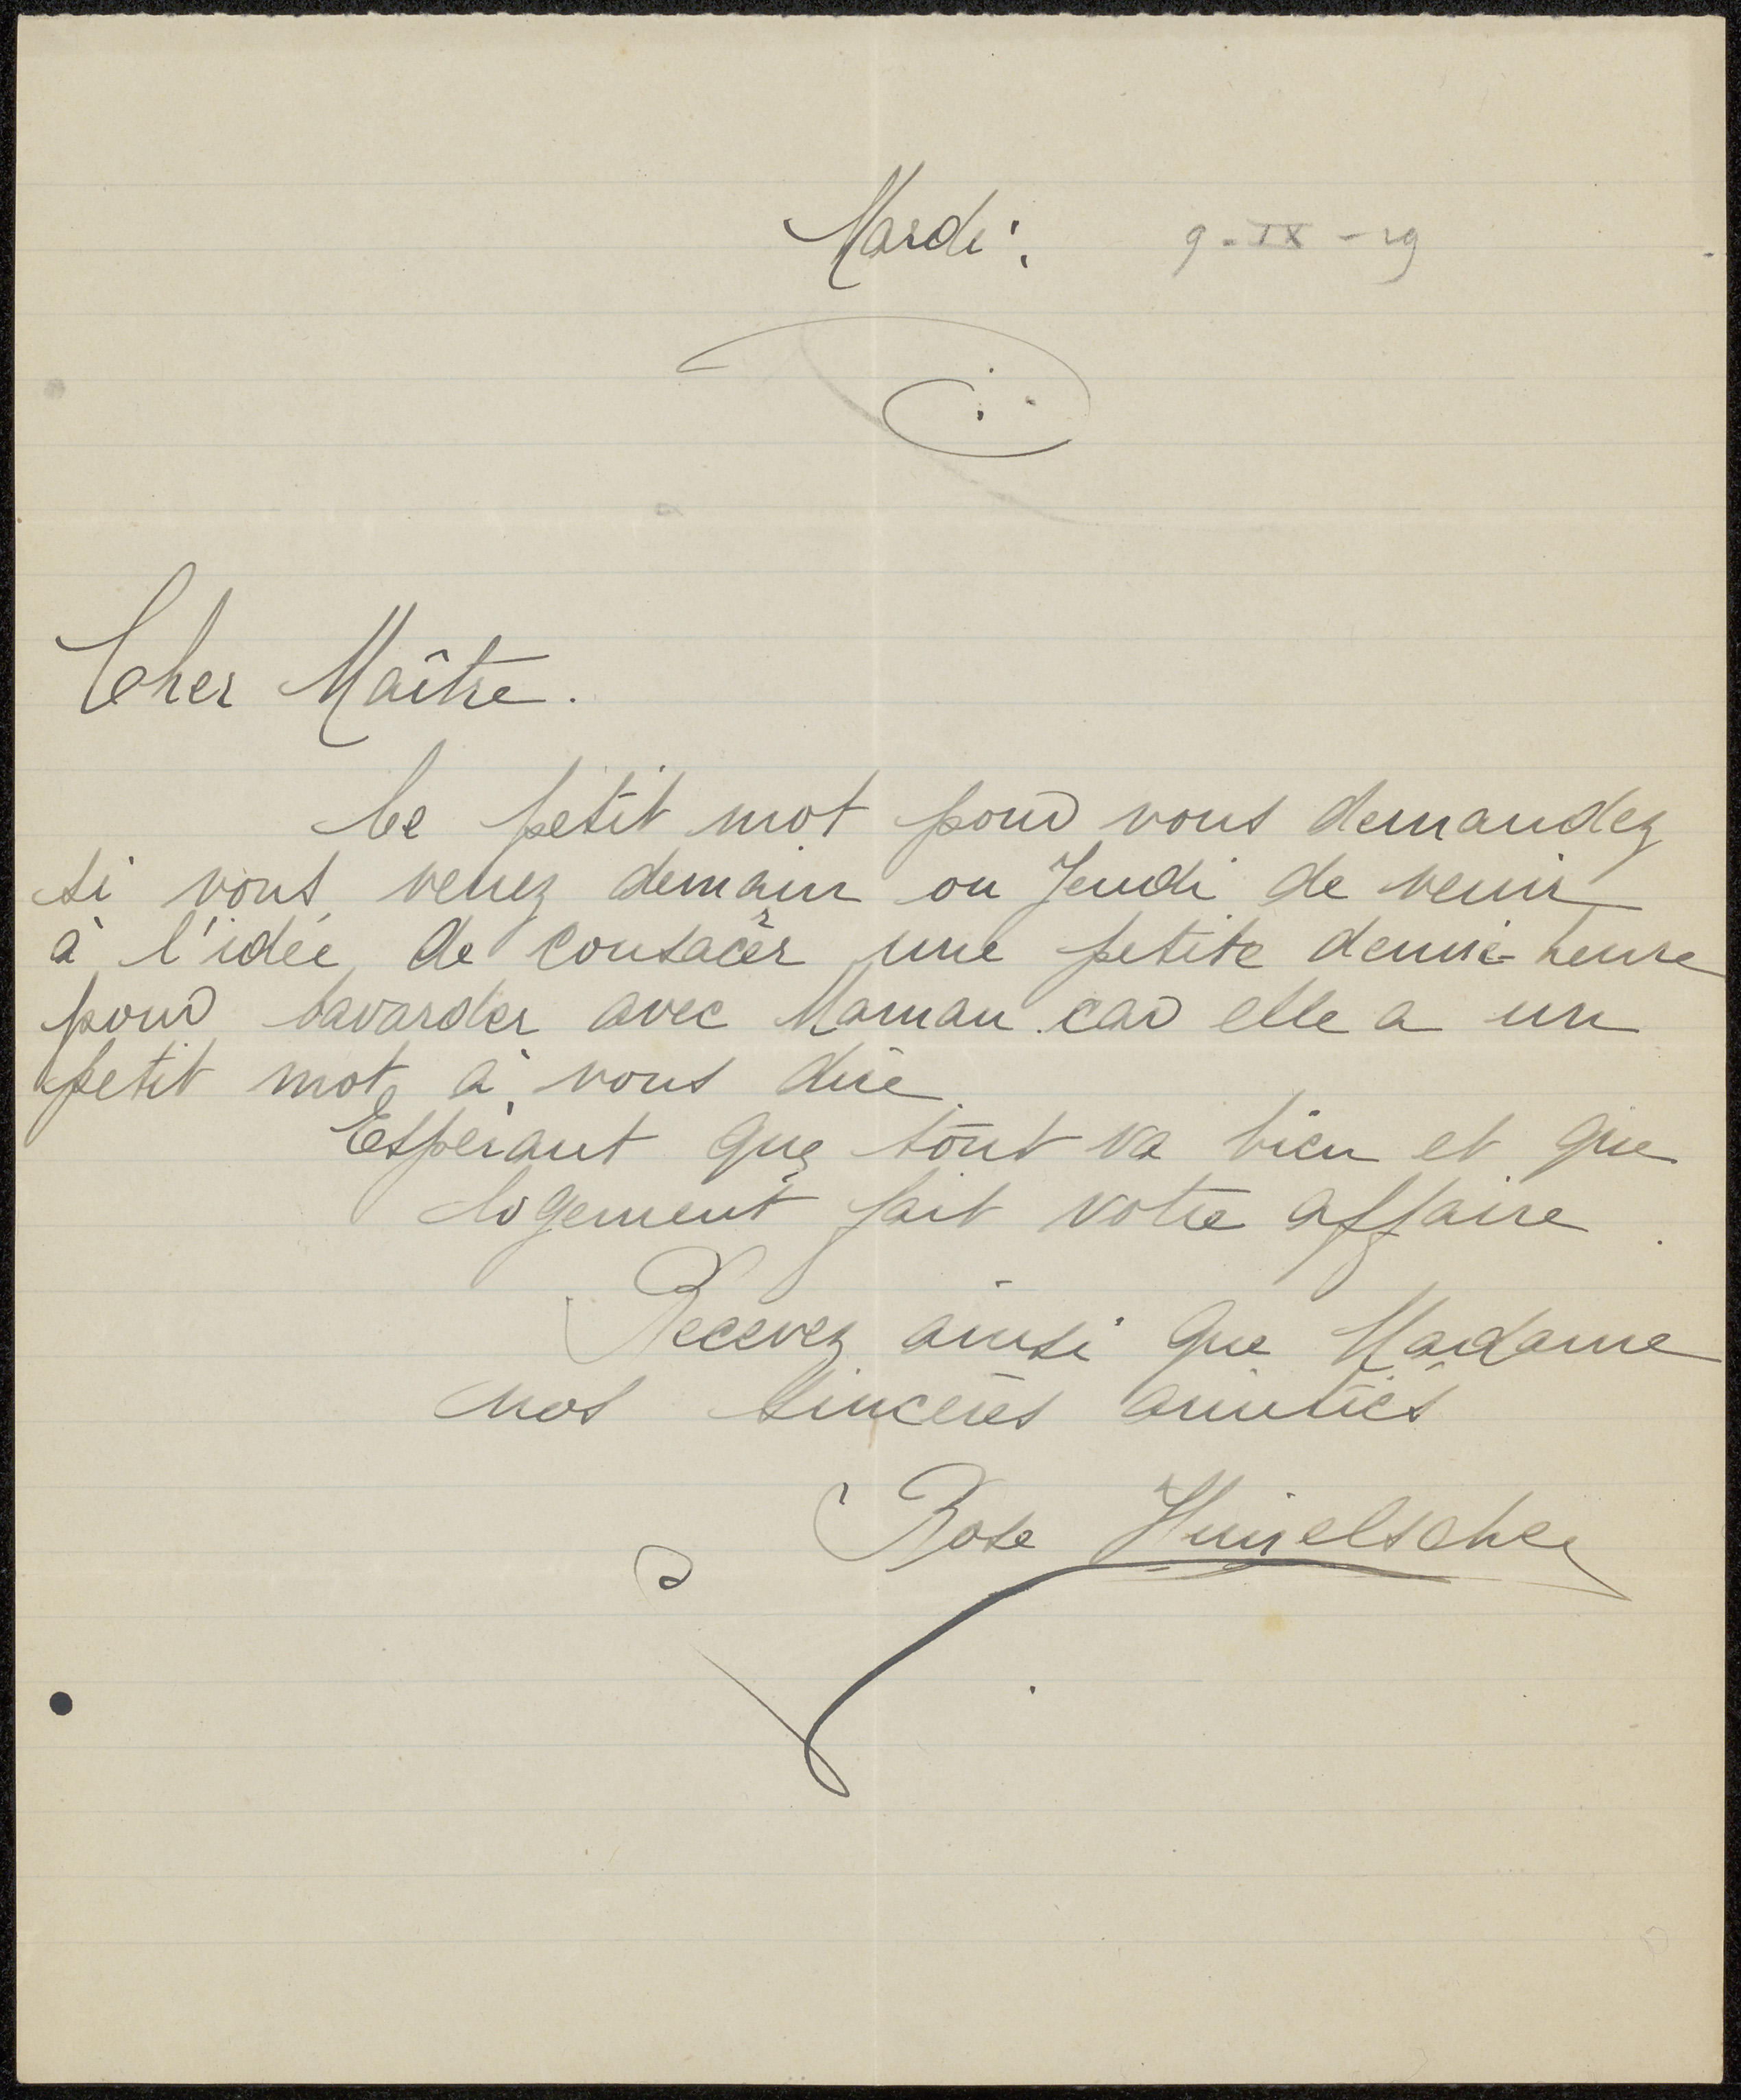 Mardi: 9-IX-29
Cher Maître.
Ce petit mot pour vous demandez
si vous venez demain ou Jeudi de venir
à l'idée de consacrér une petite demie-heure
pour bavarder avec Maman car elle a un
petit mot à vous dire.
Espérant que tout va bien et que
logement fait votre affaire.
Recevez ainsi que Madame
nos sincères amitiés
Rose